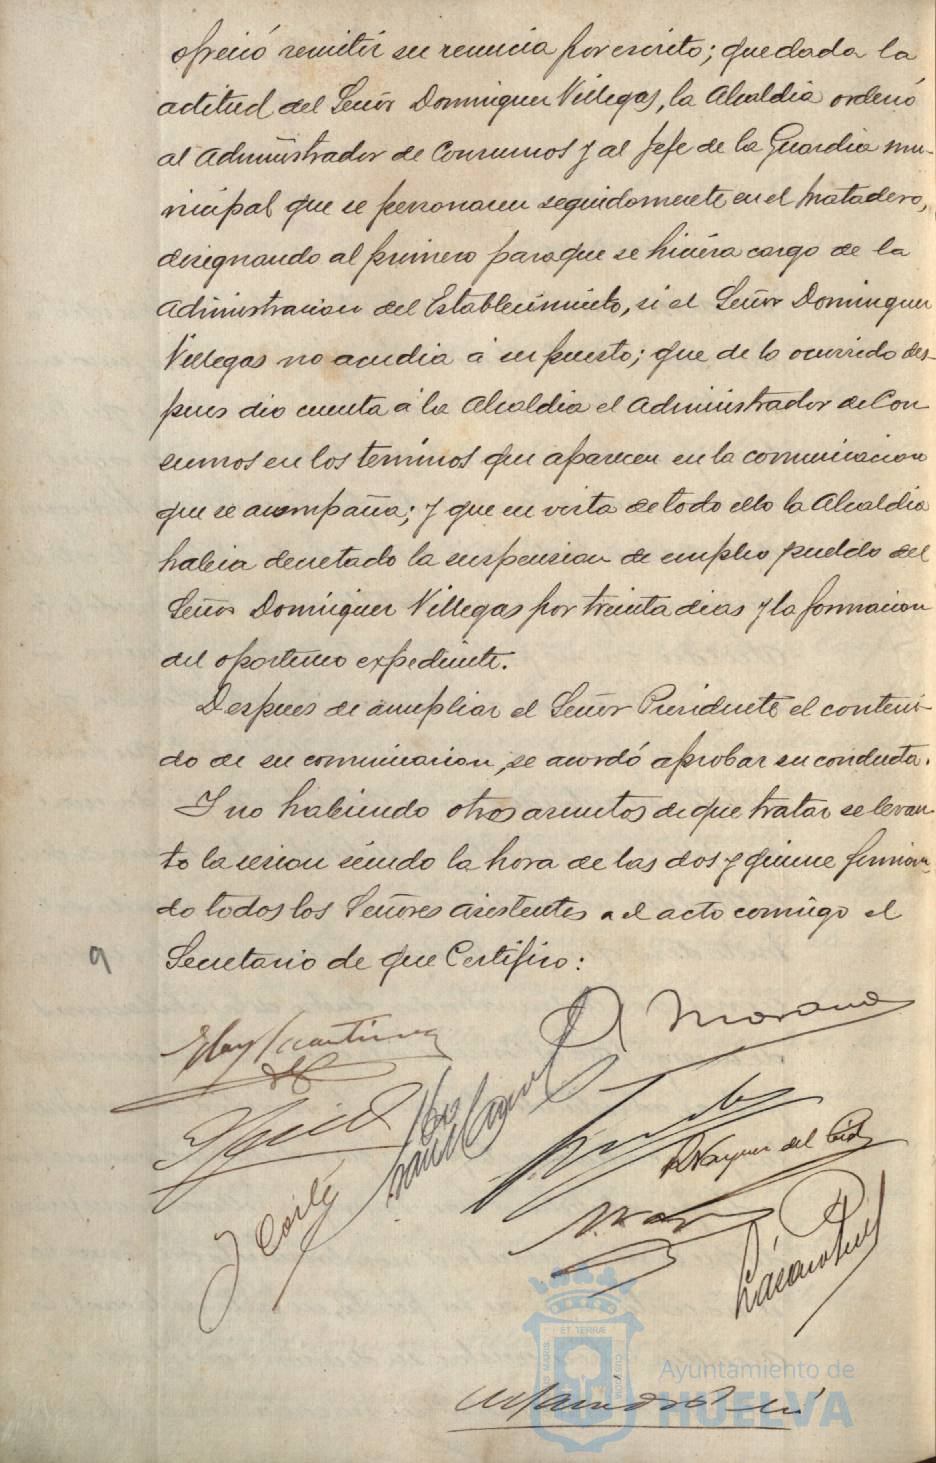 ofreció remitir su renuncia por escrito; que dada la
actitud del Señor Dominguez Villegas, la Alcaldia ordenó
al Administrador de Consumos y al Jefe de la Guardia mu-
nicipal que se personaren seguidamente en el Matadero,
designando al primero para que se hiciera cargo de la
Administracion del Establecimiento, si el Señor Dominguez
Villegas no acudia á su puesto; que de lo ocurrido des-
pues dio cuenta á la Alcaldia el Administrador de Con
sumos en los terminos que aparecen en la comunicacion
que se acompaña; y que en vista de todo ello la Alcaldia
habia decretado la suspension de empleo y sueldo del
Señor Dominguez Villegas por treinta dias y la formacion
del oportuno expediente.
Despues de ampliar el Señor Presidente el conteni-
do de su comunicacion, se acordó aprobar su conducta.
Y no habiendo otros asuntos de que tratar se levan
tó la sesion siendo la hora de las dos y quince firman-
do todos los Señores asistentes a el acto comigo el
Secretario de que Certifico:
9
Morano
Vazquez del Cid
J Coilá
Lázaro
ET TERRÆ
MARIS
CUSTODIA
Ayuntamiento de
HUELVA